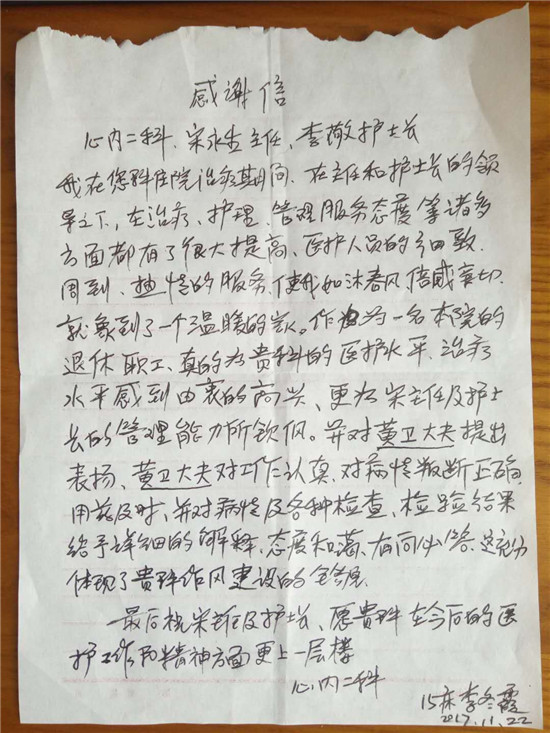 感谢信
心内二科、宋永生主任、李敬护士长
我在您科住院治疗期间、在主任和护士长的领
导之下、在治疗、护理、管理服务态度等诸多
方面都有了很大提高、医护人员的细致、
周到、热情的服务、使我如沐春风、倍感亲切、
就象到了一个温暖的家。作为一名本院的
退休职工、真的为贵科的医护水平、治疗
水平感到由衷的高兴、更为宋主任及护士
长的管理能力所钦佩。并对黄卫大夫提出
表扬、黄卫大夫对工作认真、对病情判断正确、
用药及时、并对病情及各种检查、检验结果
给予详细的解释、态度和蔼、有问必答、这充分
体现了贵科作风建设的
最后祝宋主任及护士长、愿贵科在今后的医
护工作和精神方面更上一层楼
心内二科
15床李冬霞
2017.11.22